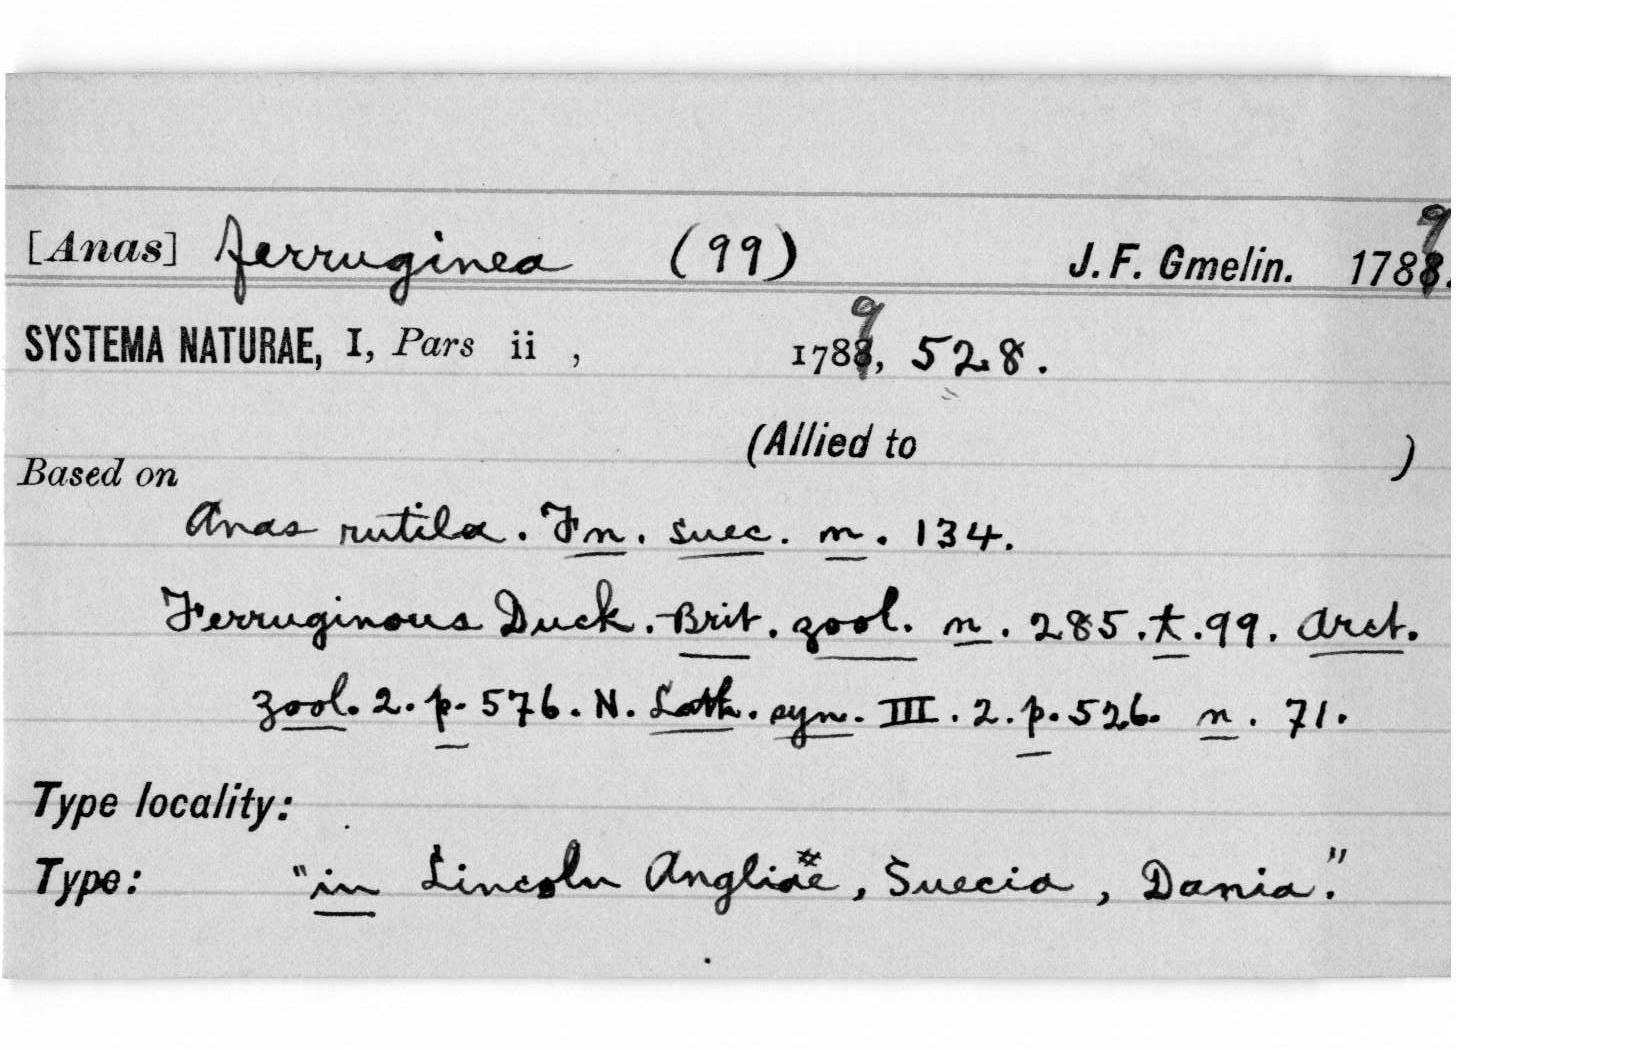 [Anas] ferruginea (99) J. F. Gmelin. 1789.
SYSTEMA NATURAE, I, Pars ii , 1789, 528.
(Allied to )
Based on
Anas rutila. Fn. suec. n. 134.
Ferruginous Duck. Brit. zool. n. 285. t. 99. Arct.
zool. 2. p. 576. N. Lath. syn. III. 2. p. 526. n. 71.
Type locality:
Type: "in Lincoln Angliæ, Suecia, Dania."